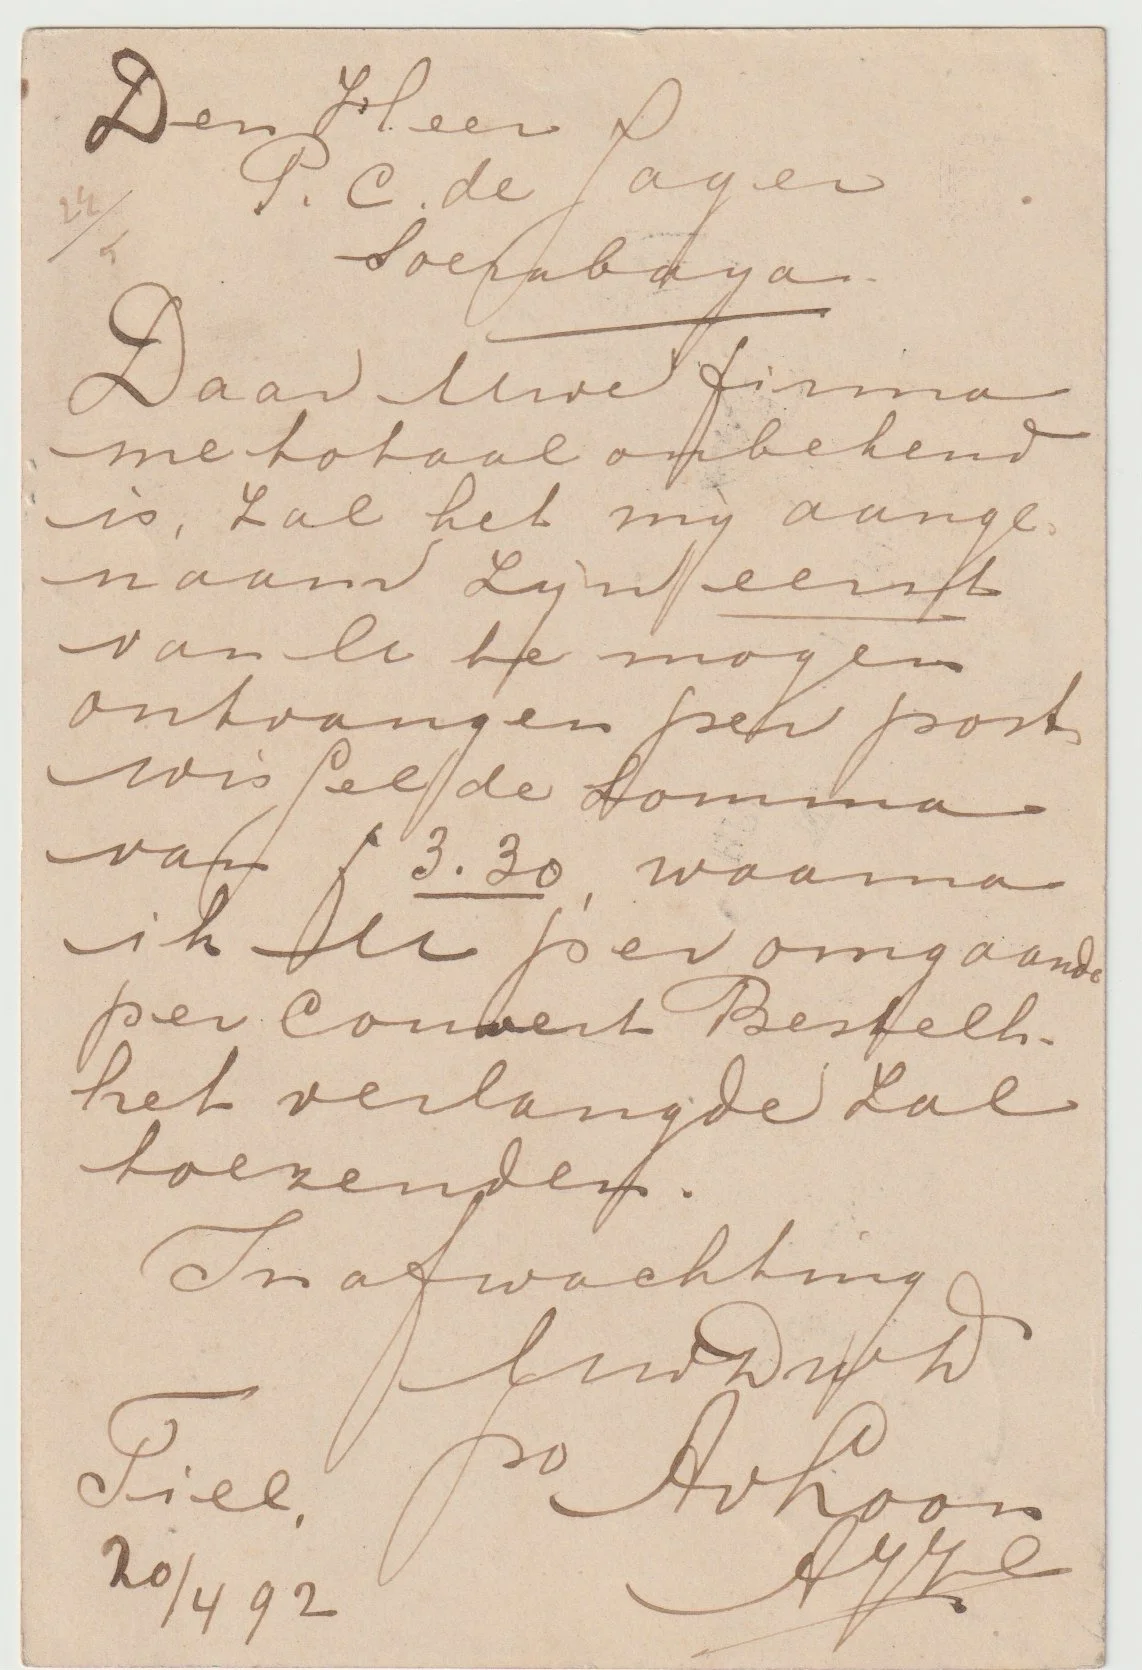 Den Heer
P. C. de Jager
Soerabaya.
22/5
Daar Uwe firma
me totaal onbekend
is, zal het mij aange-
naam zijn eerst
van U te mogen
ontvangen per post
wissel de somma
van f 3.30, waarna
ik U per omgaande
per Couvert Bestelh.
het verlangde zal
toezenden.
In afwachting
UwDwd
Tiel, po AvLoon
20/4 92